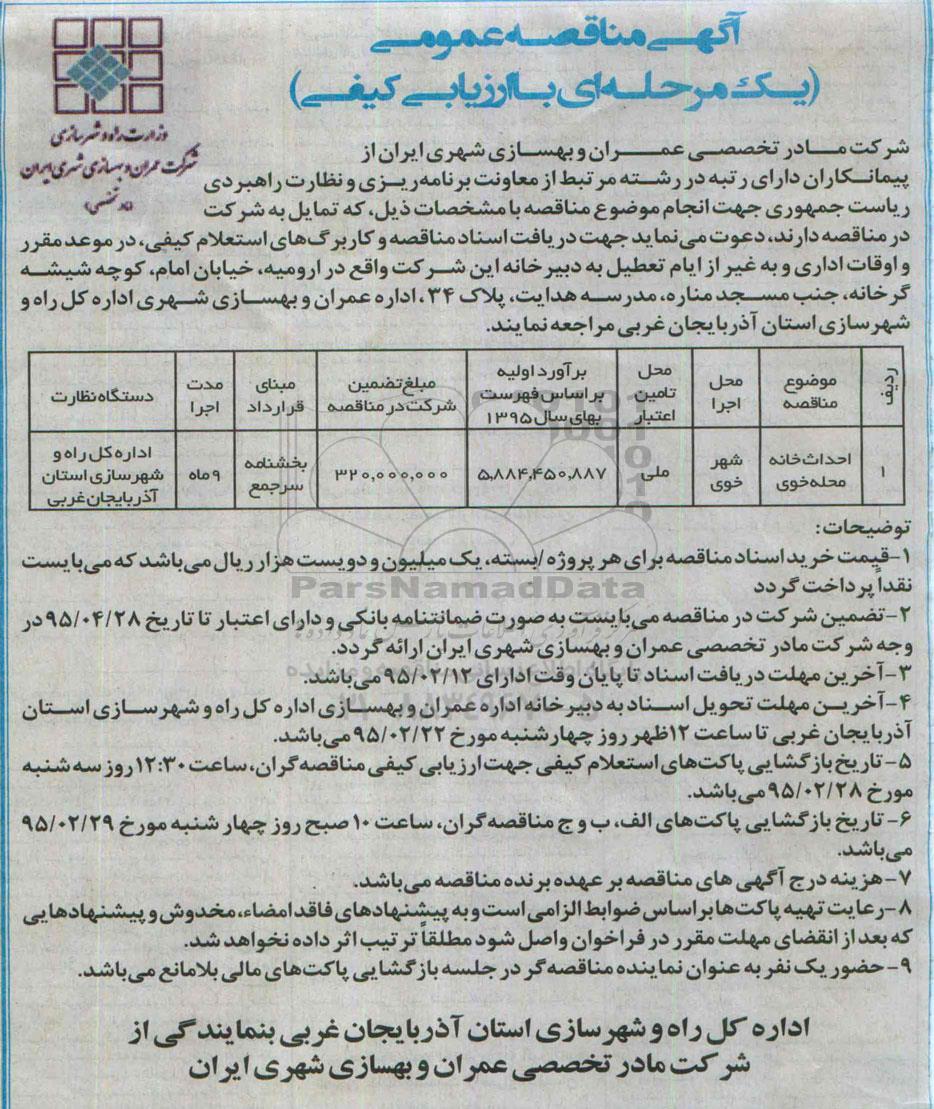 آگهی مناقصه عمومی
(یک مرحله‌ای با ارزیابی کیفی)
وزارت راه و شهرسازی
شرکت عمران و بهسازی شهری ایران
(مادر تخصصی)
شرکت مادر تخصصی عمران و بهسازی شهری ایران از
پیمانکاران دارای رتبه در رشته مرتبط از معاونت برنامه‌ریزی و نظارت راهبردی
ریاست جمهوری جهت انجام موضوع مناقصه با مشخصات ذیل، که تمایل به شرکت
در مناقصه دارند، دعوت می‌نماید جهت دریافت اسناد مناقصه و کاربرگ‌های استعلام کیفی، در موعد مقرر
و اوقات اداری و به غیر از ایام تعطیل به دبیرخانه این شرکت واقع در ارومیه، خیابان امام، کوچه شیشه
گرخانه، جنب مسجد مناره، مدرسه هدایت، پلاک ۳۴، اداره عمران و بهسازی شهری اداره کل راه و
شهرسازی استان آذربایجان غربی مراجعه نمایند.
ردیف
موضوع مناقصه
محل اجرا
محل تامین اعتبار
برآورد اولیه براساس فهرست بهای سال ۱۳۹۵
مبلغ تضمین شرکت در مناقصه
مبنای قرارداد
مدت اجرا
دستگاه نظارت
۱
احداث خانه محله خوی
شهر خوی
ملی
۵,۸۸۴,۴۵۰,۸۸۷
۳۲۰,۰۰۰,۰۰۰
بخشنامه سرجمع
۹ ماه
اداره کل راه و شهرسازی استان آذربایجان غربی
توضیحات:
۱-قیمت خرید اسناد مناقصه برای هر پروژه /بسته، یک میلیون و دویست هزار ریال می‌باشد که می‌بایست
نقداً پرداخت گردد
ParsNamadData
۲-تضمین شرکت در مناقصه می‌بایست به صورت ضمانتنامه بانکی و دارای اعتبار تا تاریخ ۹۵/۰۴/۲۸ در
وجه شرکت مادر تخصصی عمران و بهسازی شهری ایران ارائه گردد.
۳-آخرین مهلت دریافت اسناد تا پایان وقت ادارای ۹۵/۰۲/۱۲ می‌باشد.
۴-آخرین مهلت تحویل اسناد به دبیرخانه اداره عمران و بهسازی اداره کل راه و شهرسازی استان
آذربایجان غربی تا ساعت ۱۲ظهر روز چهارشنبه مورخ ۹۵/۰۲/۲۲ می‌باشد.
۵-تاریخ بازگشایی پاکت‌های استعلام کیفی جهت ارزیابی کیفی مناقصه‌گران، ساعت ۱۲:۳۰ روز سه شنبه
مورخ ۹۵/۰۲/۲۸ می‌باشد.
۶- تاریخ بازگشایی پاکت‌های الف، ب و ج مناقصه‌گران، ساعت ۱۰ صبح روز چهار شنبه مورخ ۹۵/۰۲/۲۹
می‌باشد.
۷-هزینه درج آگهی های مناقصه بر عهده برنده مناقصه می‌باشد.
۸-رعایت تهیه پاکت‌ها براساس ضوابط الزامی است و به پیشنهادهای فاقد امضاء، مخدوش و پیشنهادهایی
که بعد از انقضای مهلت مقرر در فراخوان واصل شود مطلقاً ترتیب اثر داده نخواهد شد.
۹-حضور یک نفر به عنوان نماینده مناقصه‌گر در جلسه بازگشایی پاکت‌های مالی بلامانع می‌باشد.
اداره کل راه و شهرسازی استان آذربایجان غربی بنمایندگی از
شرکت مادر تخصصی عمران و بهسازی شهری ایران